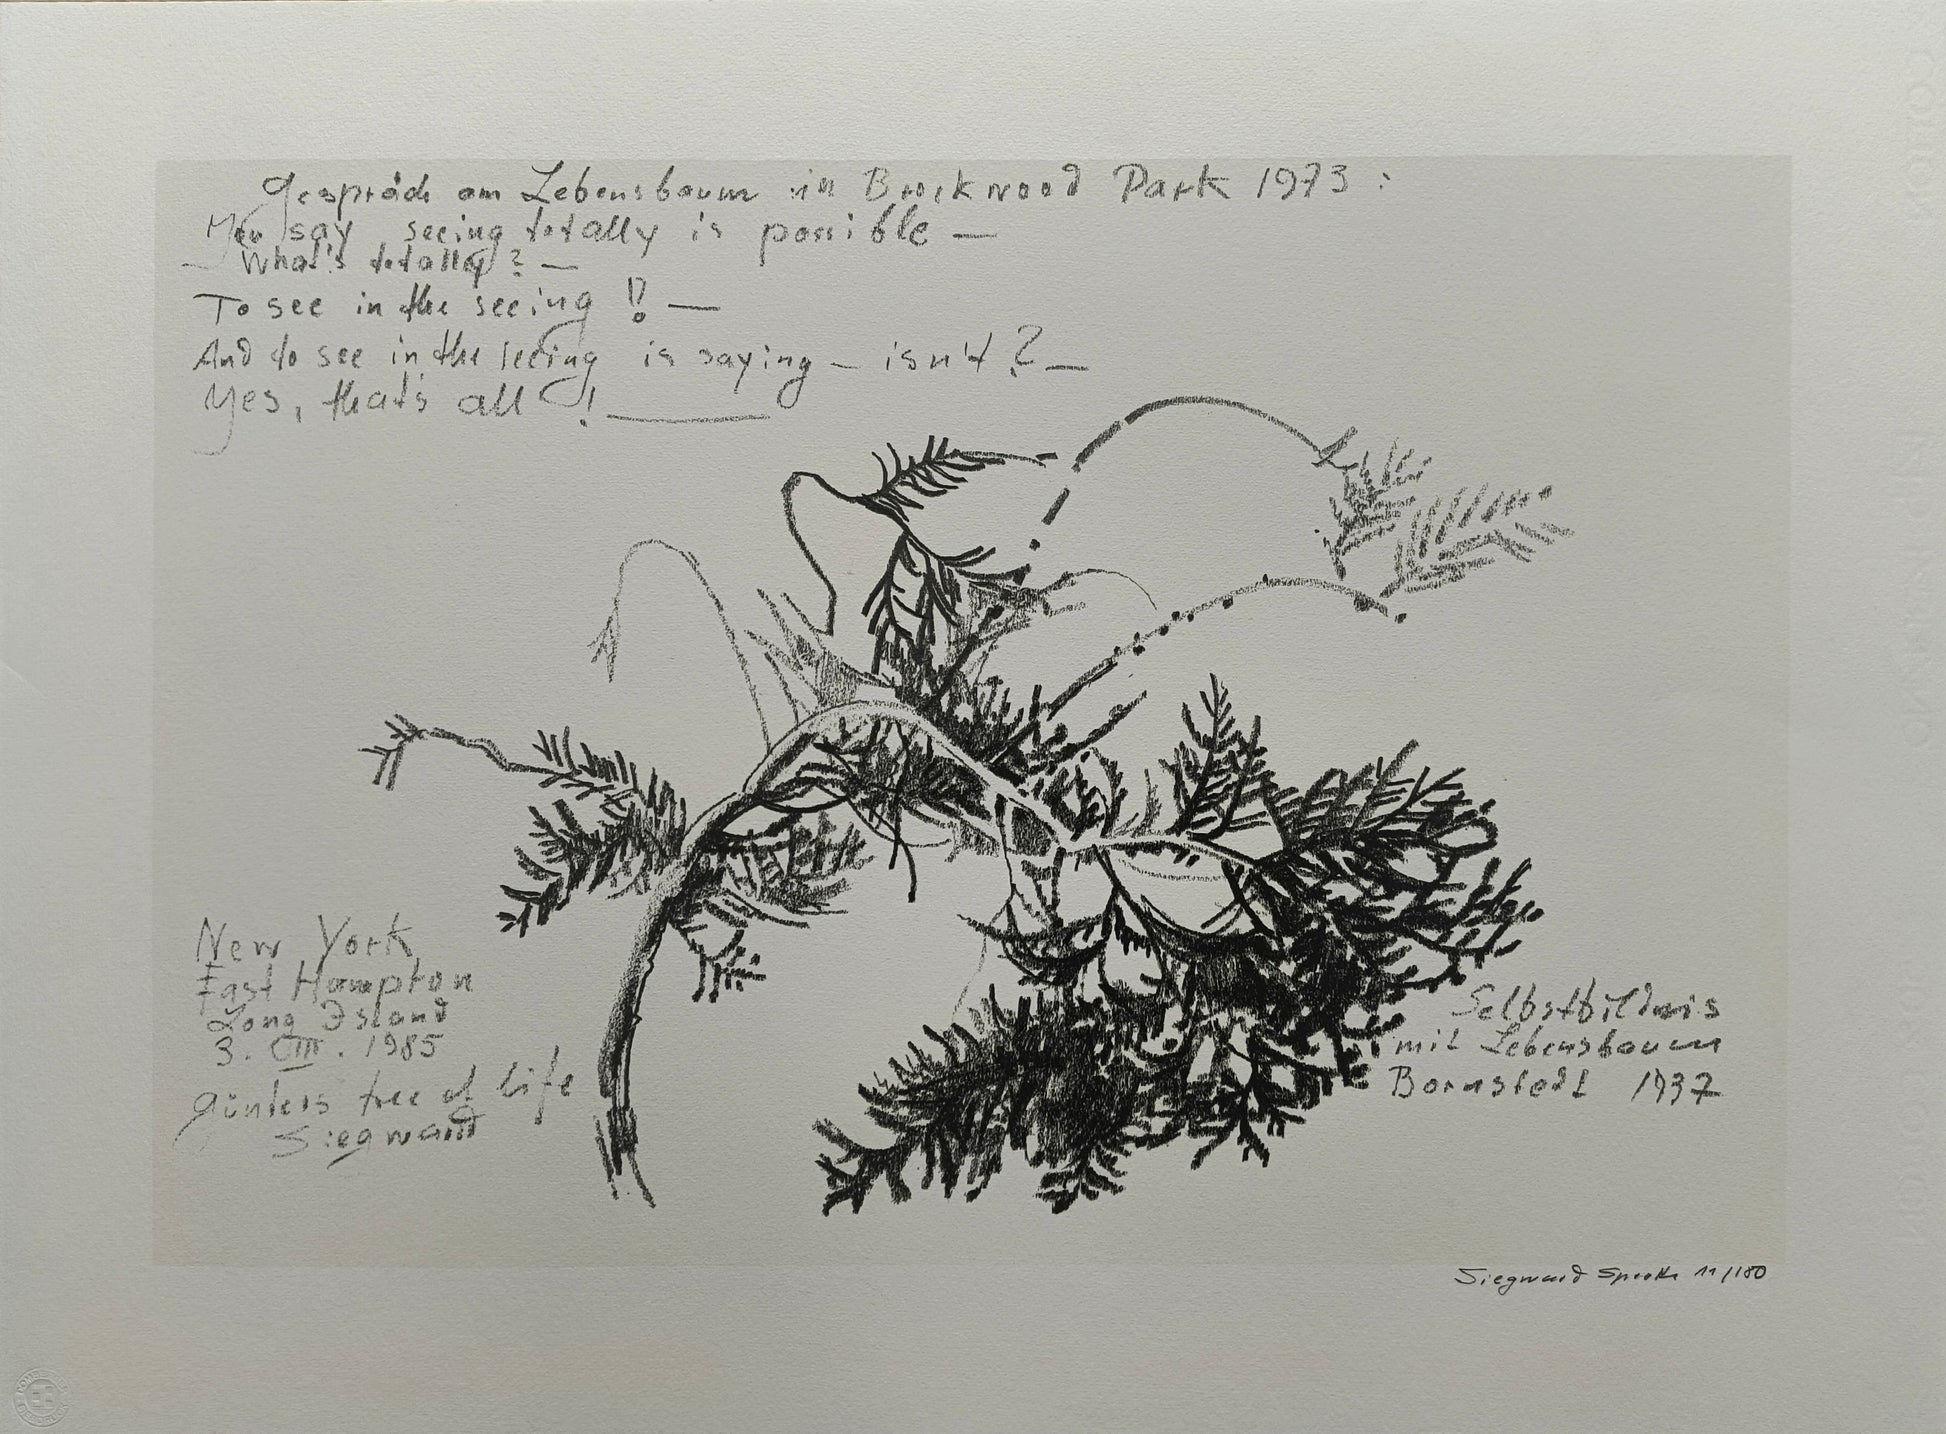 Gespräch am Lebensbaum in Brockwood Park 1973 :
You say seeing totally is possible —
— What's totally ? —
To see in the seeing !? —
And to see in the seeing is saying — isn't ? —
Yes, that's all ! —
New York
East Hampton
Long Island
3. VIII. 1985
Günters tree of life
Siegward
Selbstbildnis
mit Lebensbaum
Bornstedt 1937
Siegward Sprotte 11/180